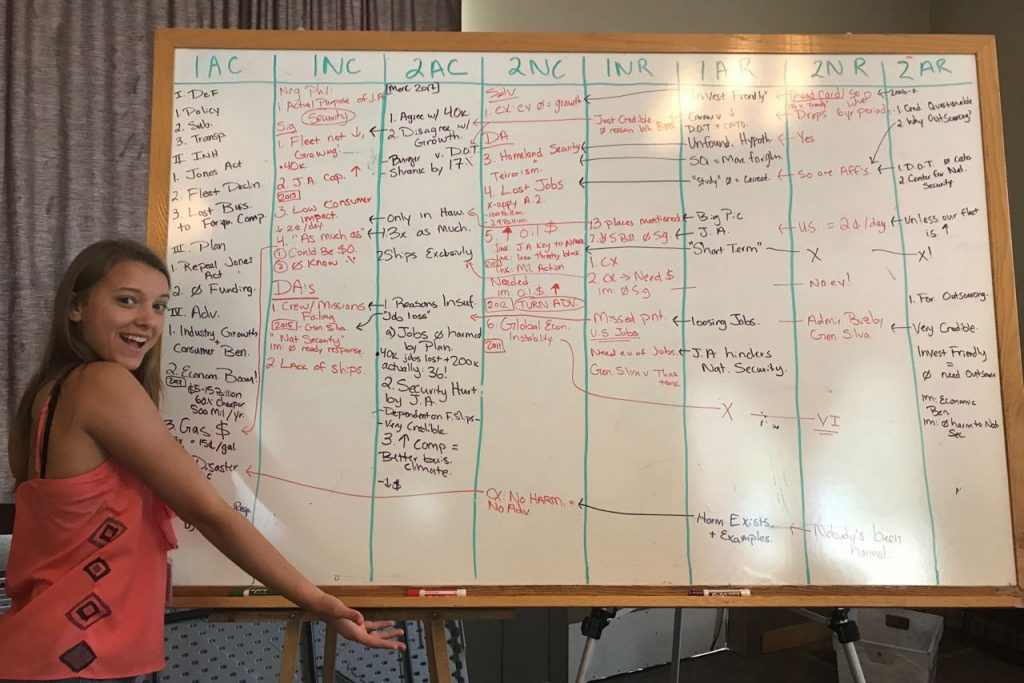 1AC
I. DEF
1. Policy
2. Sub.
3. Transp
II. INH
1. Jones Act
2. Fleet Declin.
3. Lost Buis.
to Foreign Comp.
III. Plan
1. Repeal Jones
Act
2. Ø Funding.
IV. Adv.
1. Industry Growth
+
Consumer Ben.
2. Econom. Boom!
$5-15 Billion
60% Cheaper
500 Mil/yr.
3. Gas $
= 15¢/gal.
Disaster
Resp.
1NC
Neg Phil:
1. Actual Purpose of J.A
Security
Sig
1. Fleet not ↓,
Growing!
•40K
2. J.A. Cap. ↑
2013
3. Low Consumer
Impact.
↓2¢/day.
4. "As Much as"
① Could Be $0.
② Ø Know
DA's
1. Crew/Missions
Failing
2015 - Gen Silva.
"Not Security"
Im: Ø ready response.
2. Lack of Ships.
2AC
1. Agree w/ 40K
2. Disagree w/
Growth.
v. D.O.T
- Shrank by 17%
Only in Haw.
1.3x as much.
2 Ships
1. Reasons Insuf.
Job loss"
a) Jobs Ø harmed
by Plan.
40K jobs lost + 200K
actually: 36!
2. Security Hurt
by J.A.
- Dependent on F. Ships -
- Very Credible.
3. ↑ Comp =
Better buis.
climate.
-↓$
2NC
Solv.
1. CX: ev Ø = growth
DA
3. Homeland Security
Terrorism.
4. Lost Jobs
X-apply A.2.
-100 Billion.
-29 Billion.
5. ↑ O.I. $
Ink: J.A Key to
Ink: Iran threaty block
Ink: Mil Action
Needed
im: O.I. $ ↑
2012 TURN ADV.
6. Global Econ.
Instability.
2011
CX: NO HARM =
No Adv.
1NR
Just Credible.
Ø reason b/t Bills
13 places mentioned.
2. Bill. Ø Sg.
1. CX
2. CX → Need $
im: Ø Sig
Missed pnt.
U.S Jobs
Need ev of Jobs.
Gen. Silva v Think
tank
1AR
"Invest Friendly"
D.O.T +
Unfound. Hypoth.
SQ = More foreign.
"Study" Ø = Correct.
Big Pic
J.A.
"Short Term"
loosing Jobs.
J.A hinders
Nat. Security.
X
Harm Exists
+ Examples.
2NR
Read Card! So
What
Drops 6yr period
Yes.
So are AFF's.
US. = 2¢/day
X
No ev!
Admir. Buzby
Gen. Silva.
VI
Nobody's been
harmed.
2AR
1. Cred. Questionable
2. Why OutSourcing?
1. D.O.T. Ø Cato
2. Center for Nat.
Security
Unless our fleet
is ↑
X!
1. For. Outsourcing.
Very Credible.
Invest Friendly
=
Ø need Outsource
Im: Economic
Ben.
im: Ø harm to Nat
Sec.